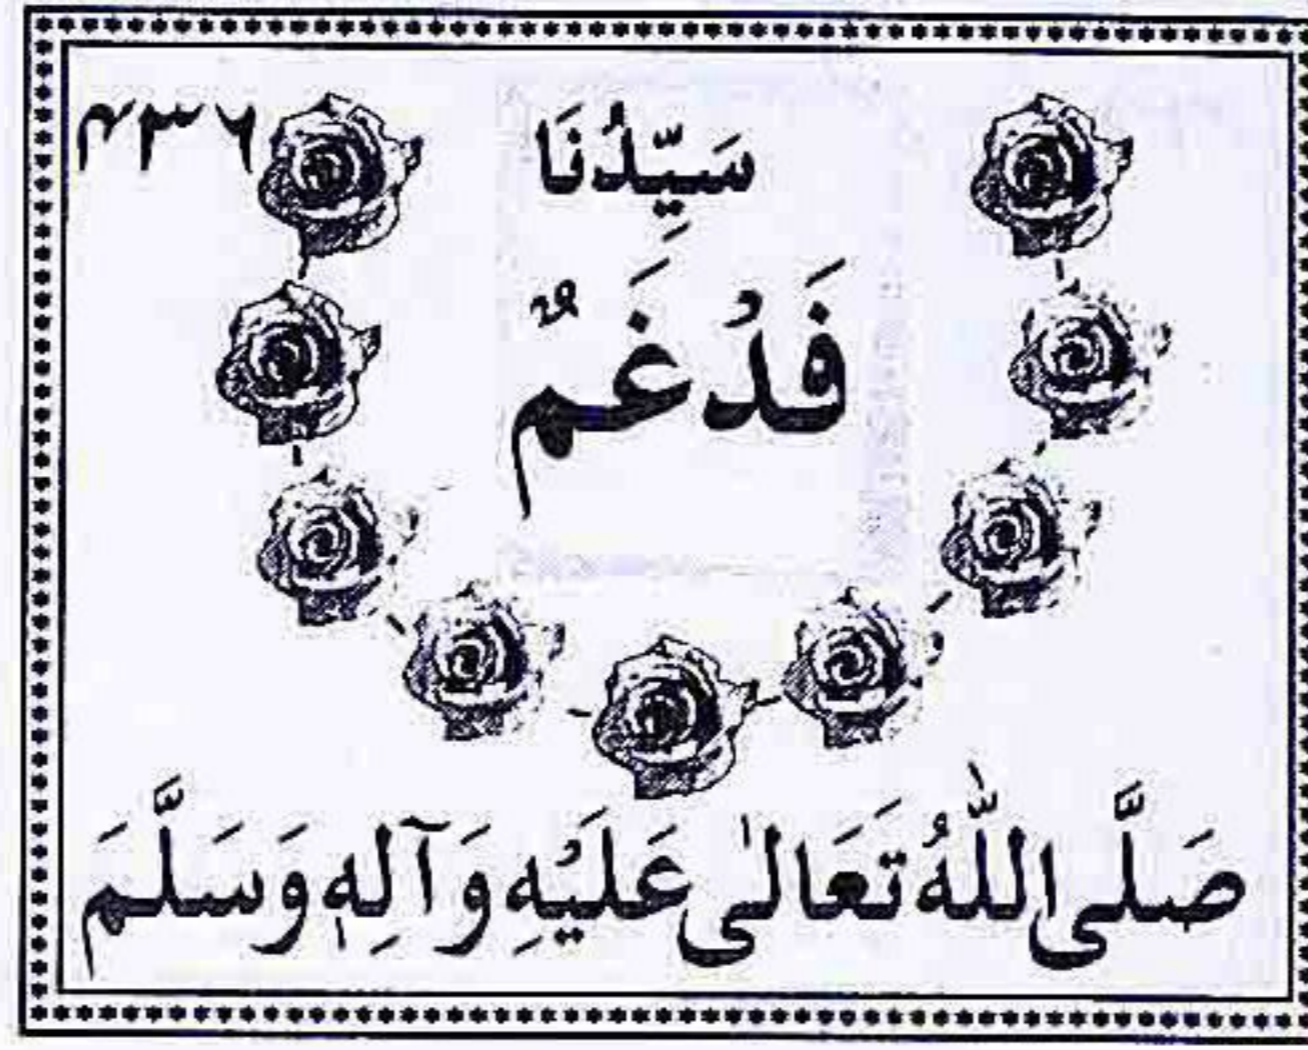 سَيِّدُنَا ۴۳۶
فَدْغَمٌ
صَلَّى اللّٰهُ تَعَالٰى عَلَيْهِ وَآلِهٖ وَسَلَّمَ